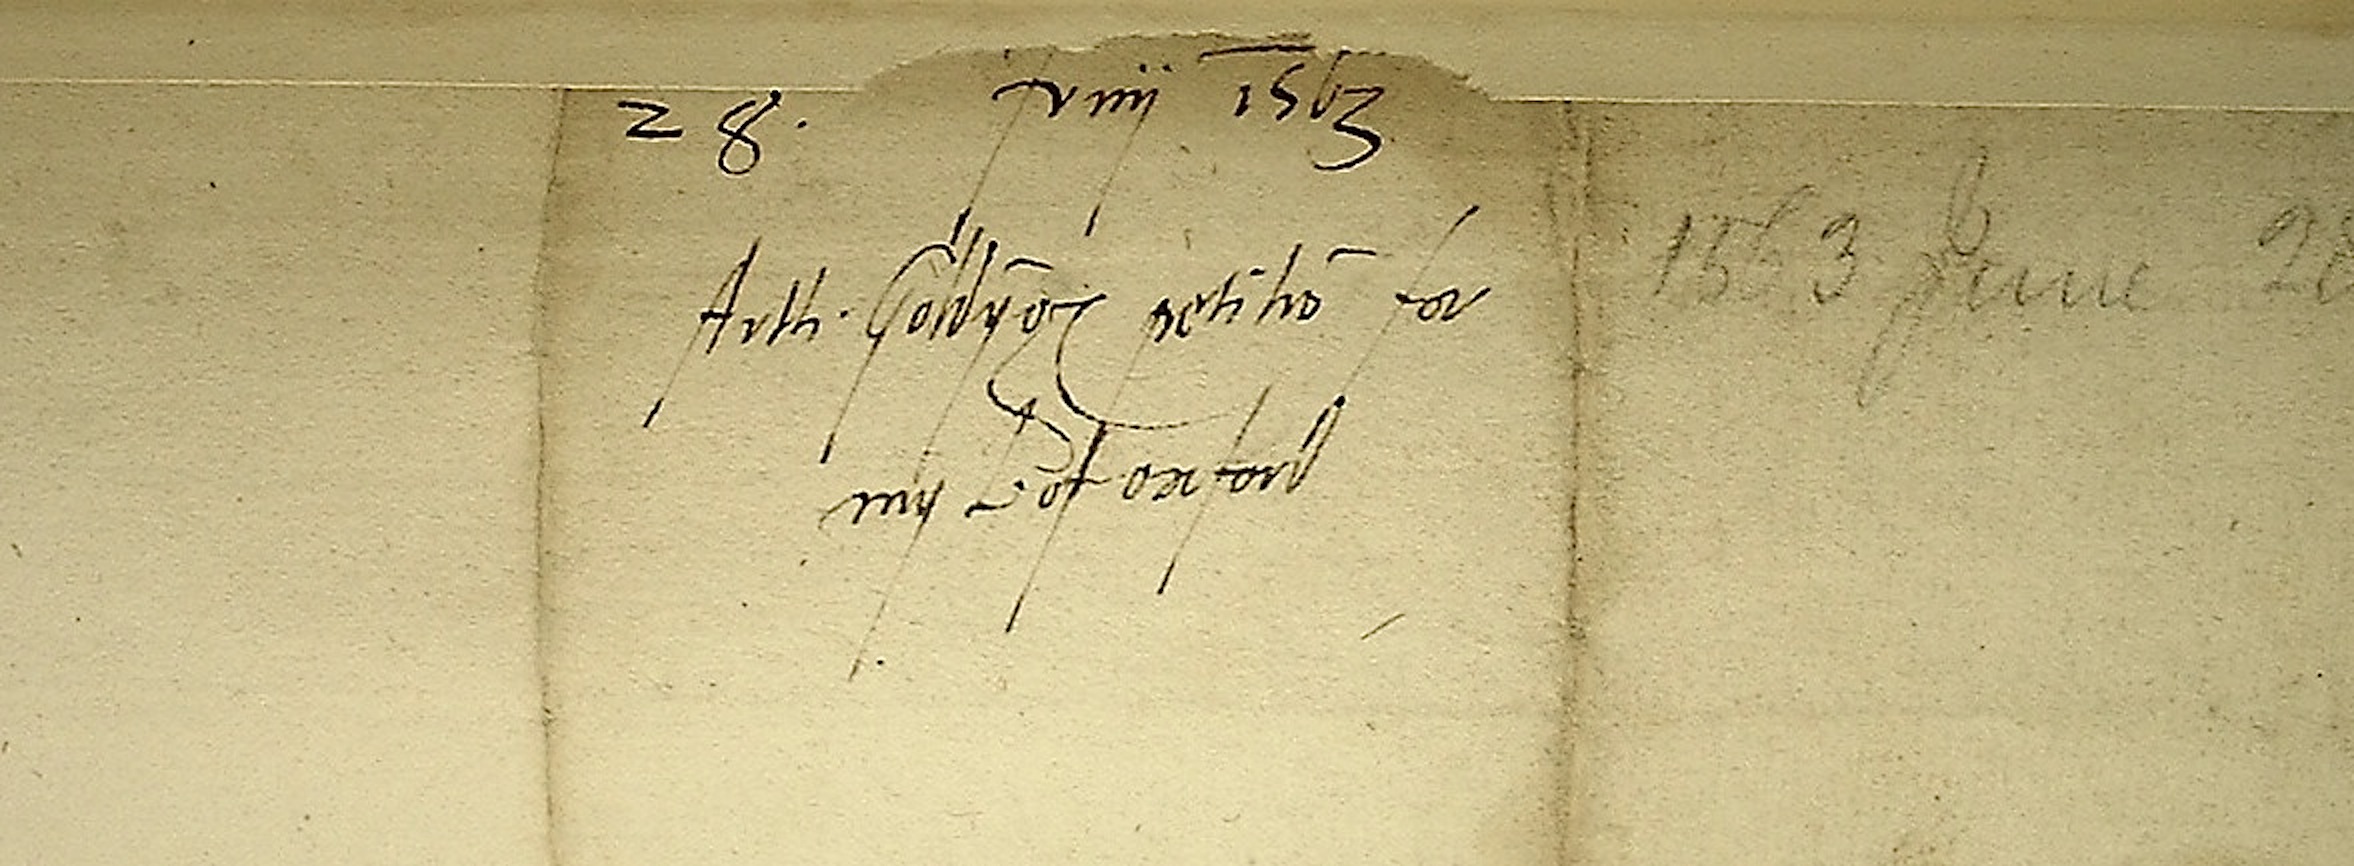 28. Junij 1563
Arth. Goldyng petitiō for
my Lo. of oxenford
1563 June 28